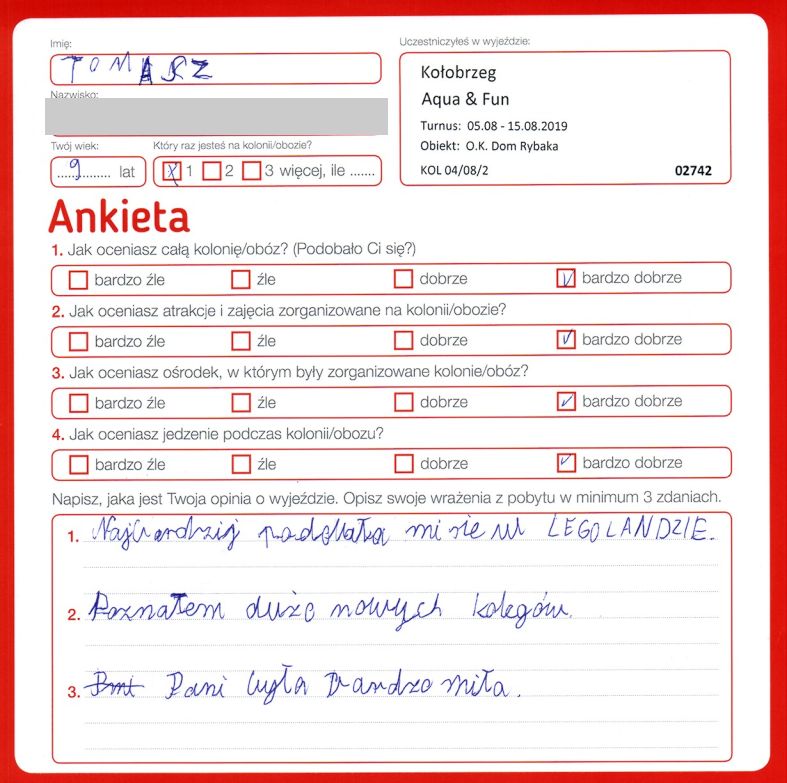 Imię:
TOMASZ
Nazwisko:
Twój wiek:
9 lat
Który raz jesteś na kolonii/obozie?
1 2 3 więcej, ile .......
Uczestniczyłeś w wyjeździe:
Kołobrzeg
Aqua & Fun
Turnus: 05.08 - 15.08.2019
Obiekt: O.K. Dom Rybaka
KOL 04/08/2 02742
Ankieta
1. Jak oceniasz całą kolonię/obóz? (Podobało Ci się?)
bardzo źle źle dobrze bardzo dobrze
2. Jak oceniasz atrakcje i zajęcia zorganizowane na kolonii/obozie?
bardzo źle źle dobrze bardzo dobrze
3. Jak oceniasz ośrodek, w którym były zorganizowane kolonie/obóz?
bardzo źle źle dobrze bardzo dobrze
4. Jak oceniasz jedzenie podczas kolonii/obozu?
bardzo źle źle dobrze bardzo dobrze
Napisz, jaka jest Twoja opinia o wyjeździe. Opisz swoje wrażenia z pobytu w minimum 3 zdaniach.
1. Najbardziij podobało mi sie w LEGOLANDZIE.
2. Poznałem dużo nowych kolegów.
3. Pani była bardzo miła.